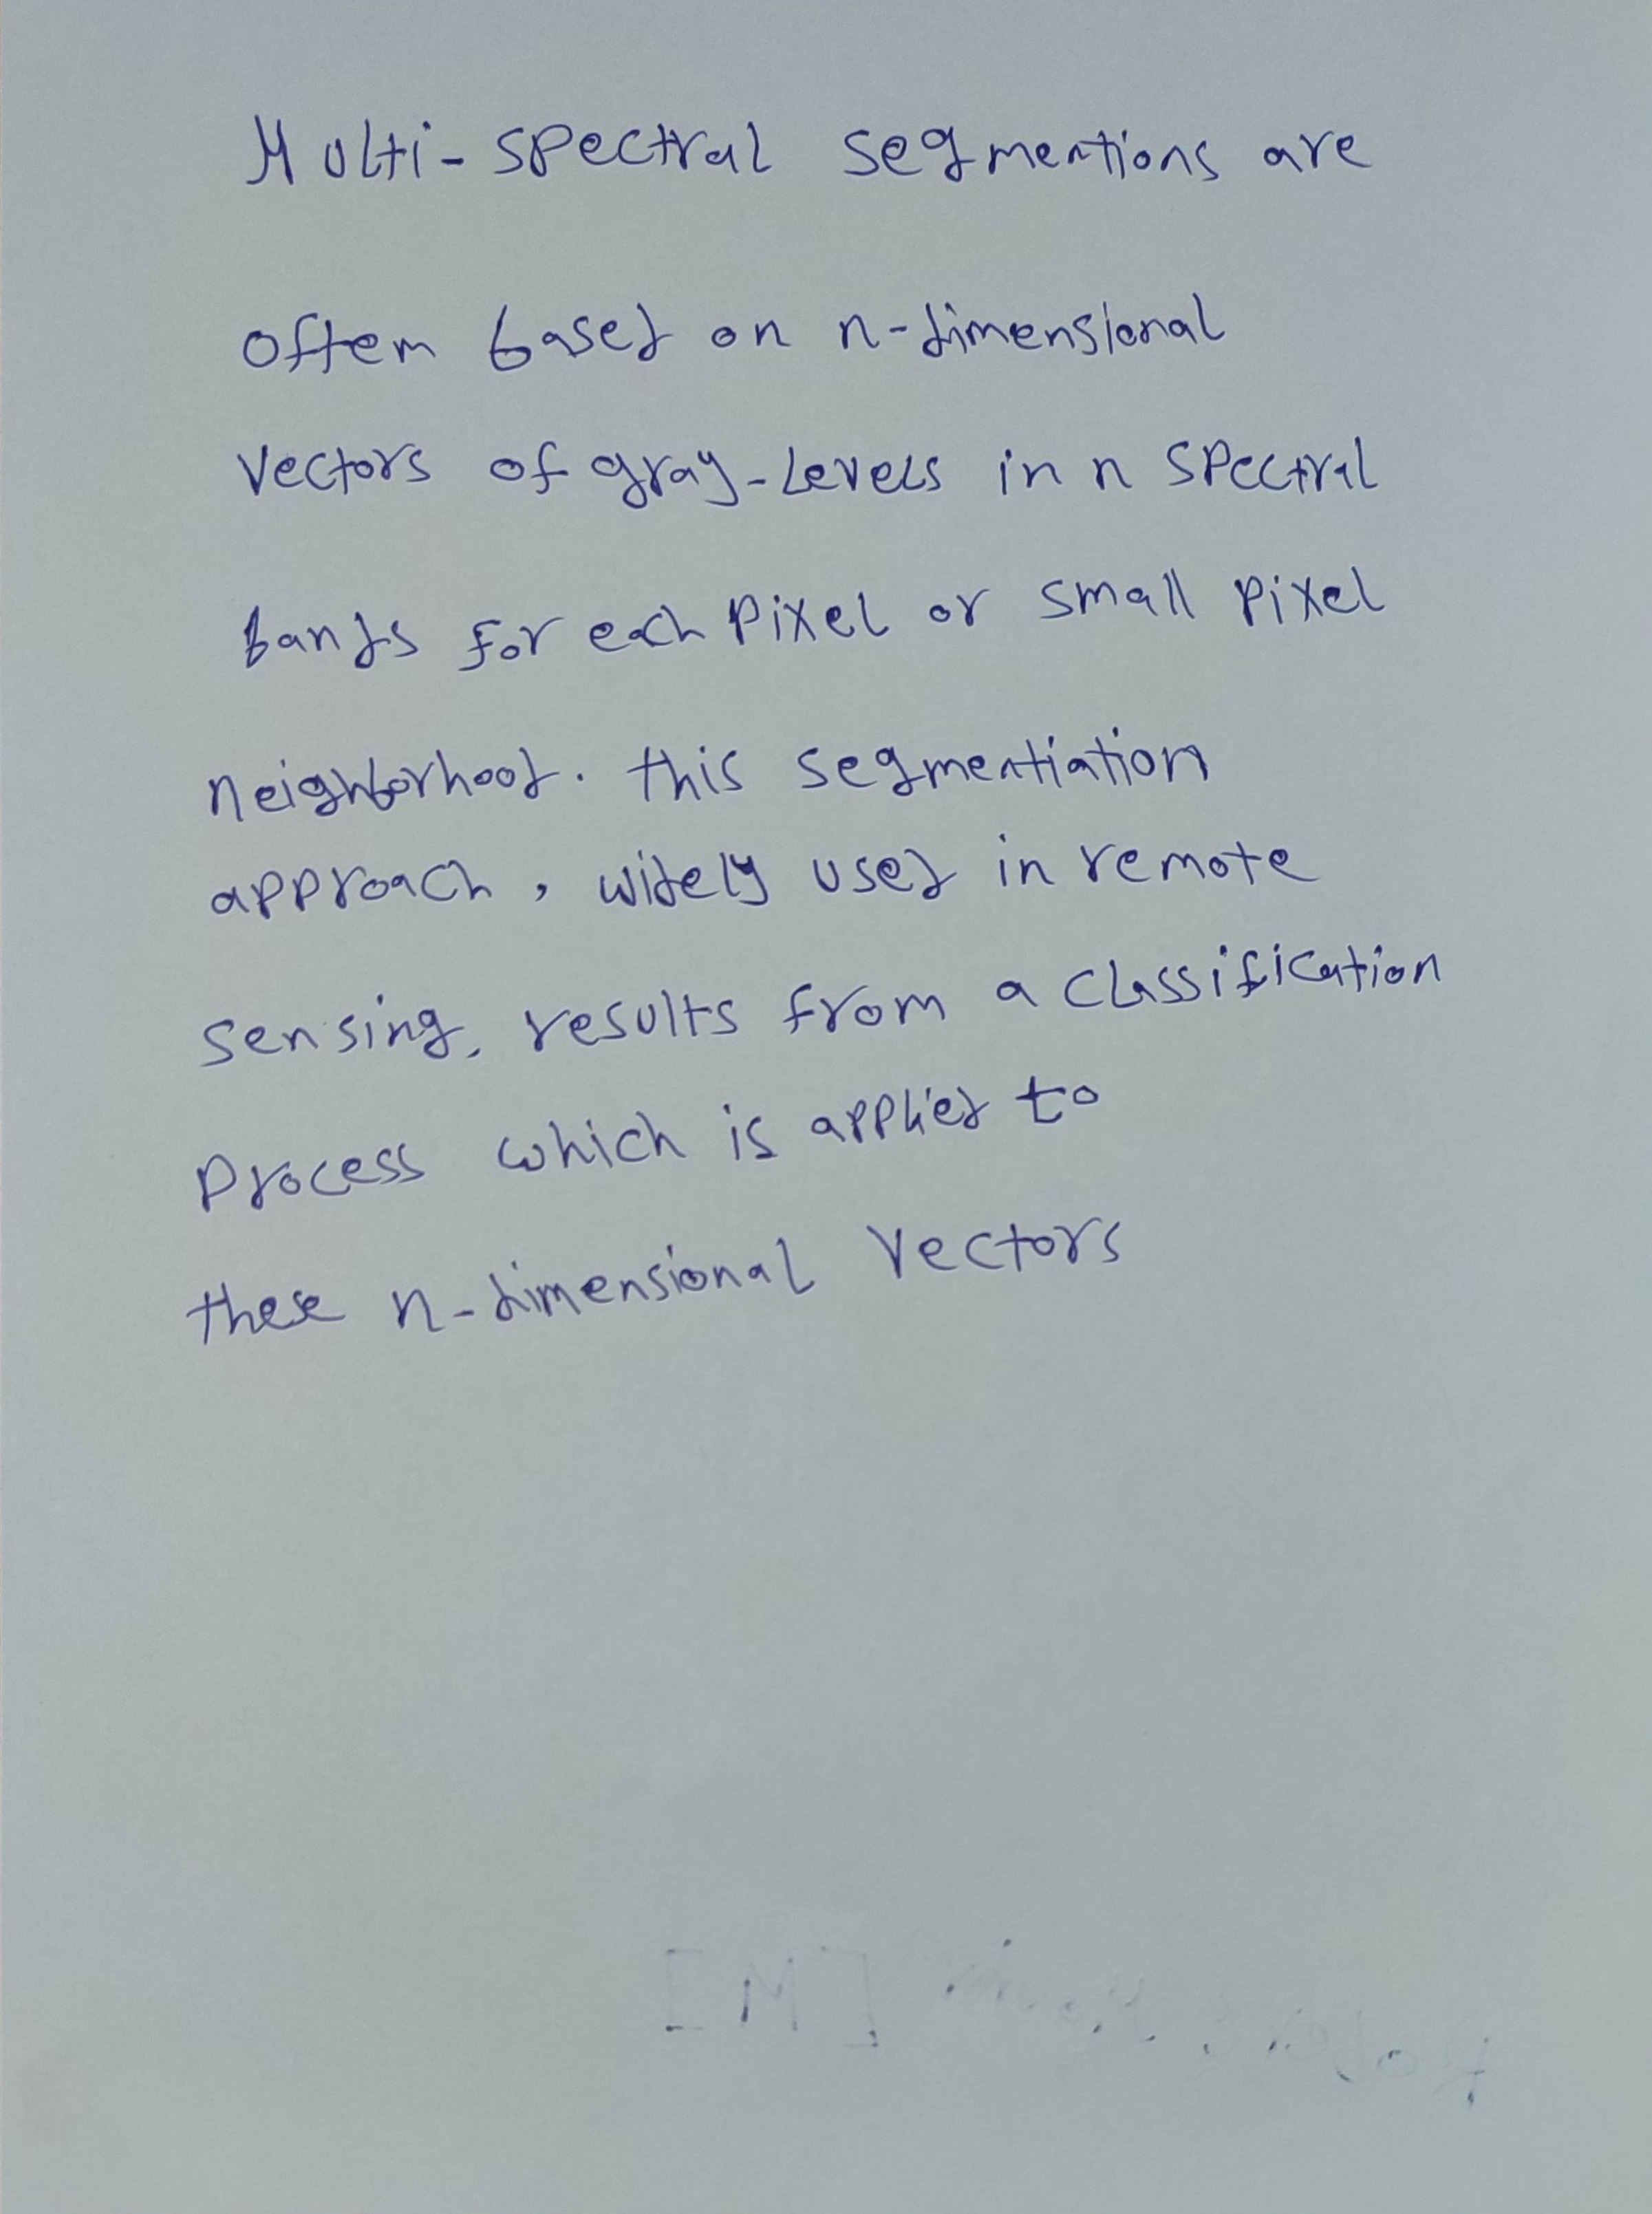 Multi-spectral segmentions are
oftem based on n-dimensional
Vectors of gray-Levels in n spectral
bands for each pixel or small pixel
neighborhood. this segmentiation
approach, widely used in remote
sensing, results from a classification
process which is applied to
these n-dimensional Vectors